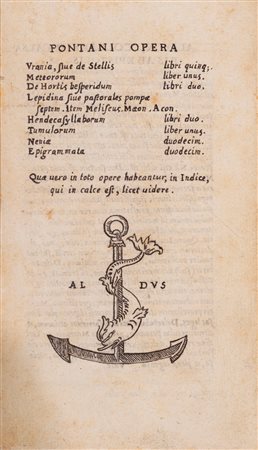 PONTANI OPERA
Vrania, siue de Stellis libri quinq;
Meteororum liber unus.
De Hortis hesperidum libri duo.
Lepidina siue pastorales pompæ
septem. Item Meliseus. Mæon. Acon.
Hendecasyllaborum libri duo.
Tumulorum liber unus.
Neniæ duodecim.
Epigrammata duodecim.
Quæ uero in toto opere habeantur, in Indice,
qui in calce est, licet uidere.
AL DVS